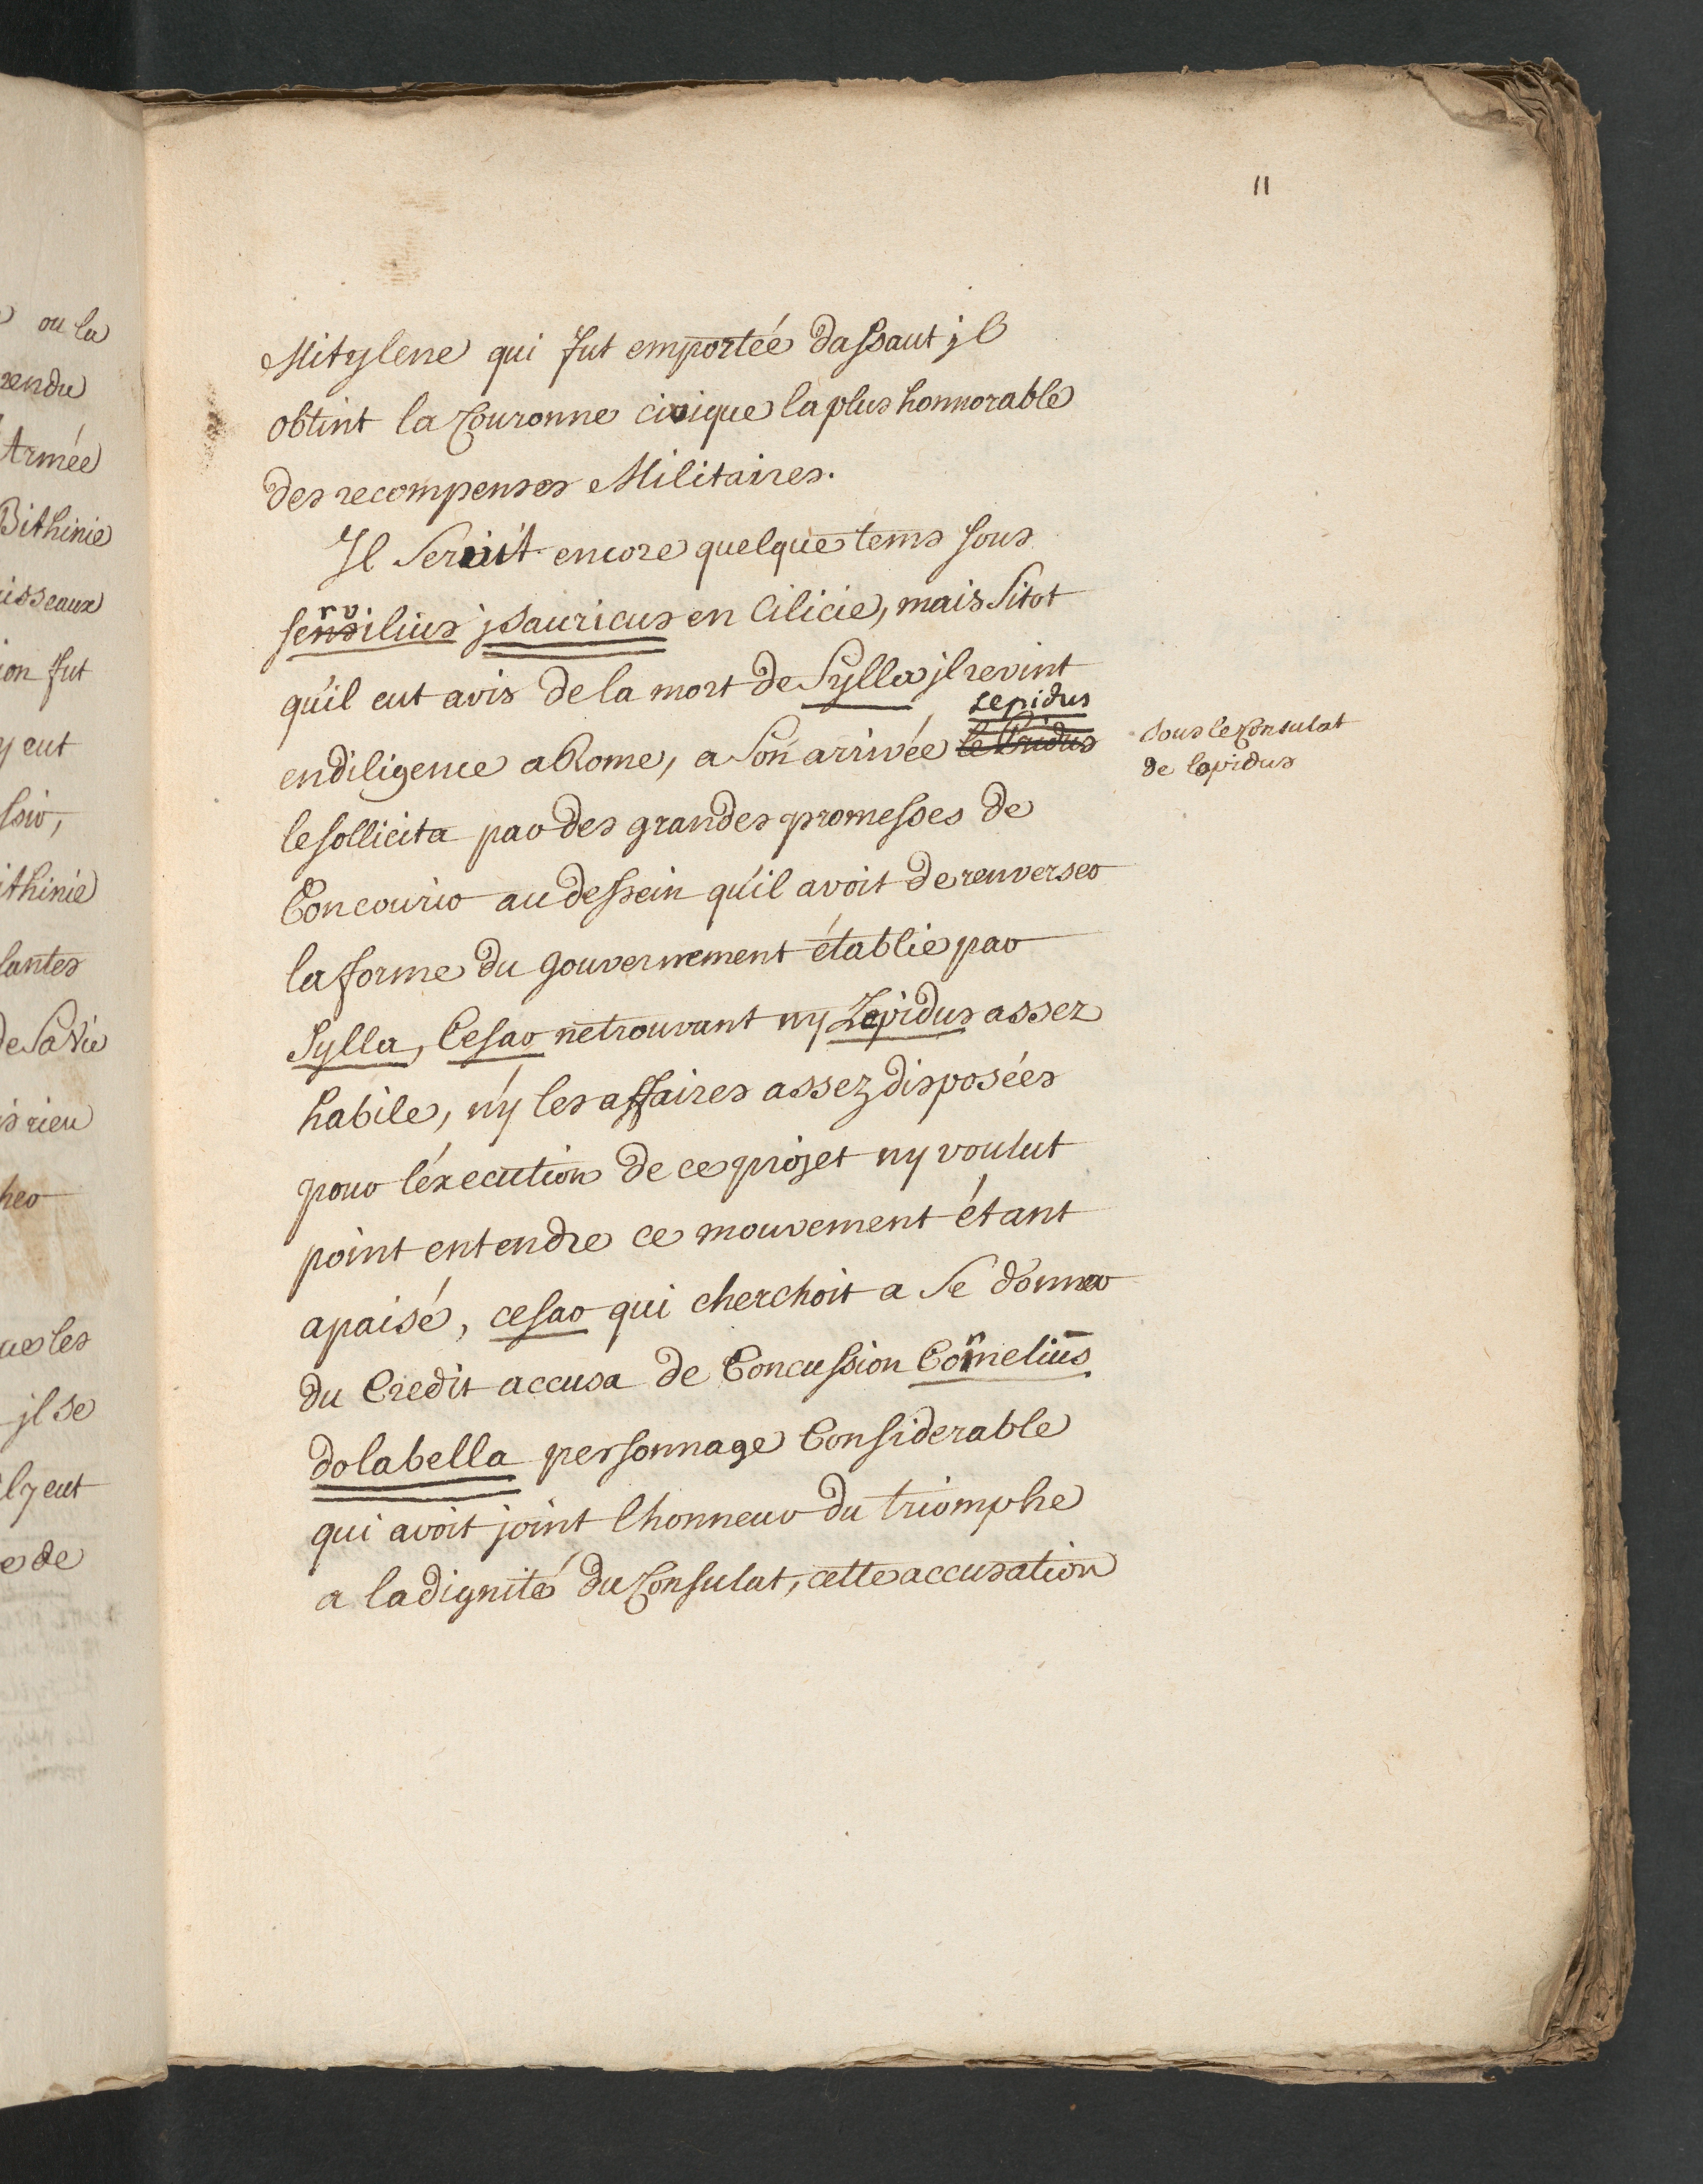 11
Mitylene qui fut emportée dassaut jl
obtint la Couronne civique la plus honnorable
des recompenses Militaires.
Il Servit encore quelque tems sous
servilius jsauricus en Cilicie, mais Sitot
qu'il eut avis de la mort de Sylla jl revint
en diligence a Rome, a Son arrivée Lepidus
sous le Consulat
de lepidus
le sollicita par des grandes promesses de
Concourir au dessein qu'il avoit de renverser
la forme du gouvernement établie par
Sylla, Cesar ne trouvant ny Lepidus assez
habile, n'y les affaires assez disposées
pour l'éxecution de ce projet ny voulut
point entendre ce mouvement étant
apaisé, cesar qui cherchoit a Se donner
du Credit accusa de Concussion Cornelius
dolabella personnage Considerable
qui avoit joint lhonneur du triomphe
a la dignité du Consulat, cette accusation
ou la
rendu
Armée
Bithinie
isseaux
ion fut
y eut
ithinie
lantes
de Sa Vie
s rien
ues les
jl se
il y eut
e de